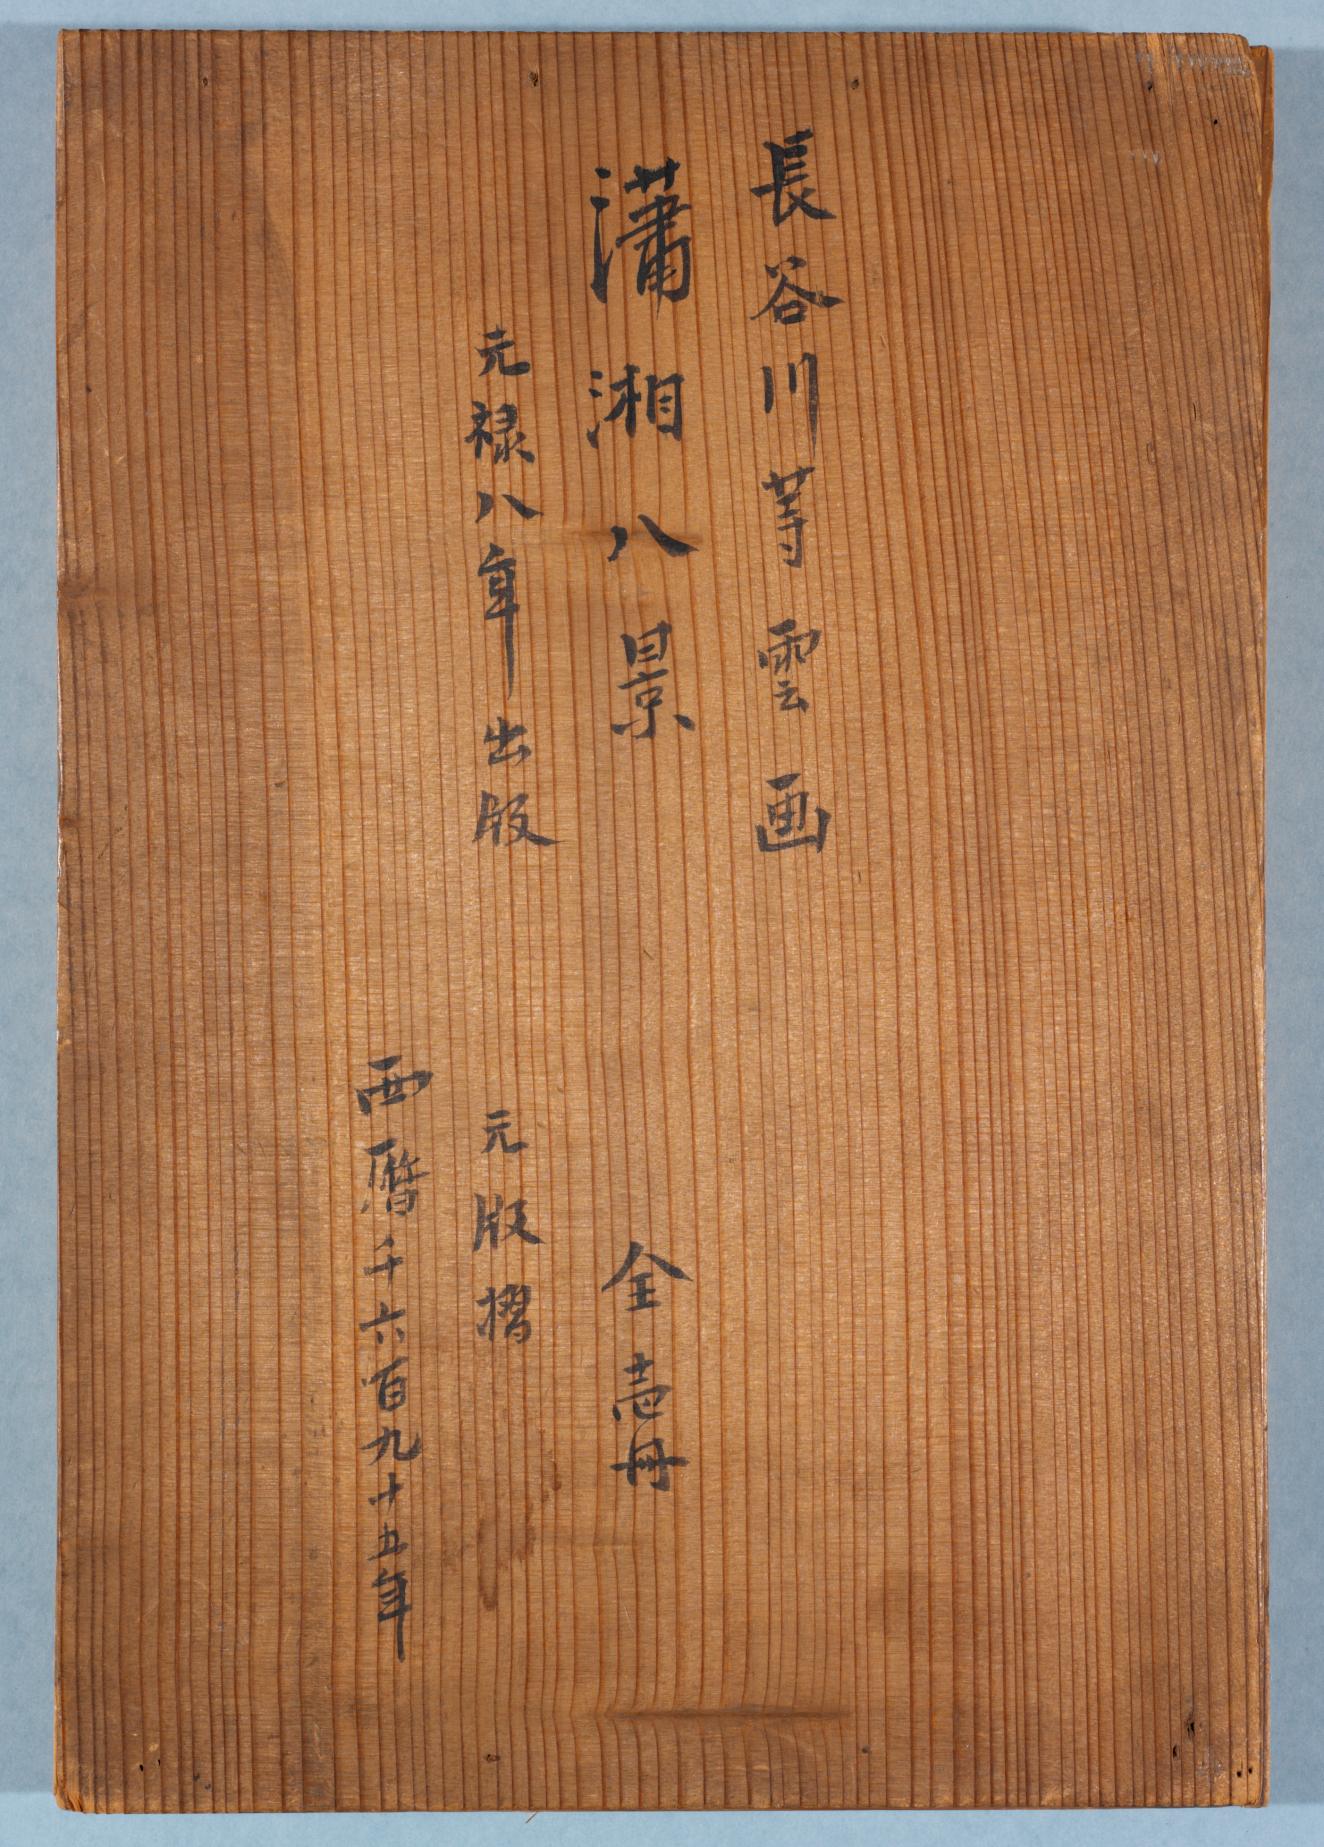 長谷川等雲画
瀟湘八景　全壱冊
元禄八年出版　元版摺
西暦千六百九十五年